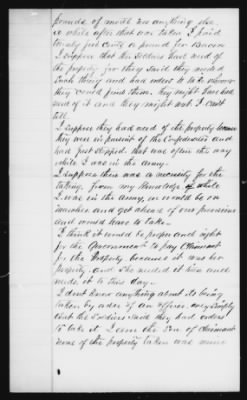 pounds of meal nor anything else.
a while after that was taken I paid
twenty five cents a pound for Bacon
I suppose that the Soldiers had need of
the property for they said they needed
such things and had orders to take wherever
they could find them. they might have had
need of it and they might not I cant
tell
I suppose they had need of the property because
they were in pursuit of the Confederates and
had just stopped. that was often the way
while I was in the army.
I suppose there was a necessity for the
taking, from my knowledge of while
I was in the army, we would be on
marches and got ahead of our provisions
and would have to take
I think it would be proper and right
for the Government to pay Claimant
for the Property because it was her
property and she needed it then and
needs it to this day.
I dont know anything about its being
taken by order of an officer, only simply
that the Soldiers said they had orders
to take it I am the Son of Claimant
none of the property taken was mine